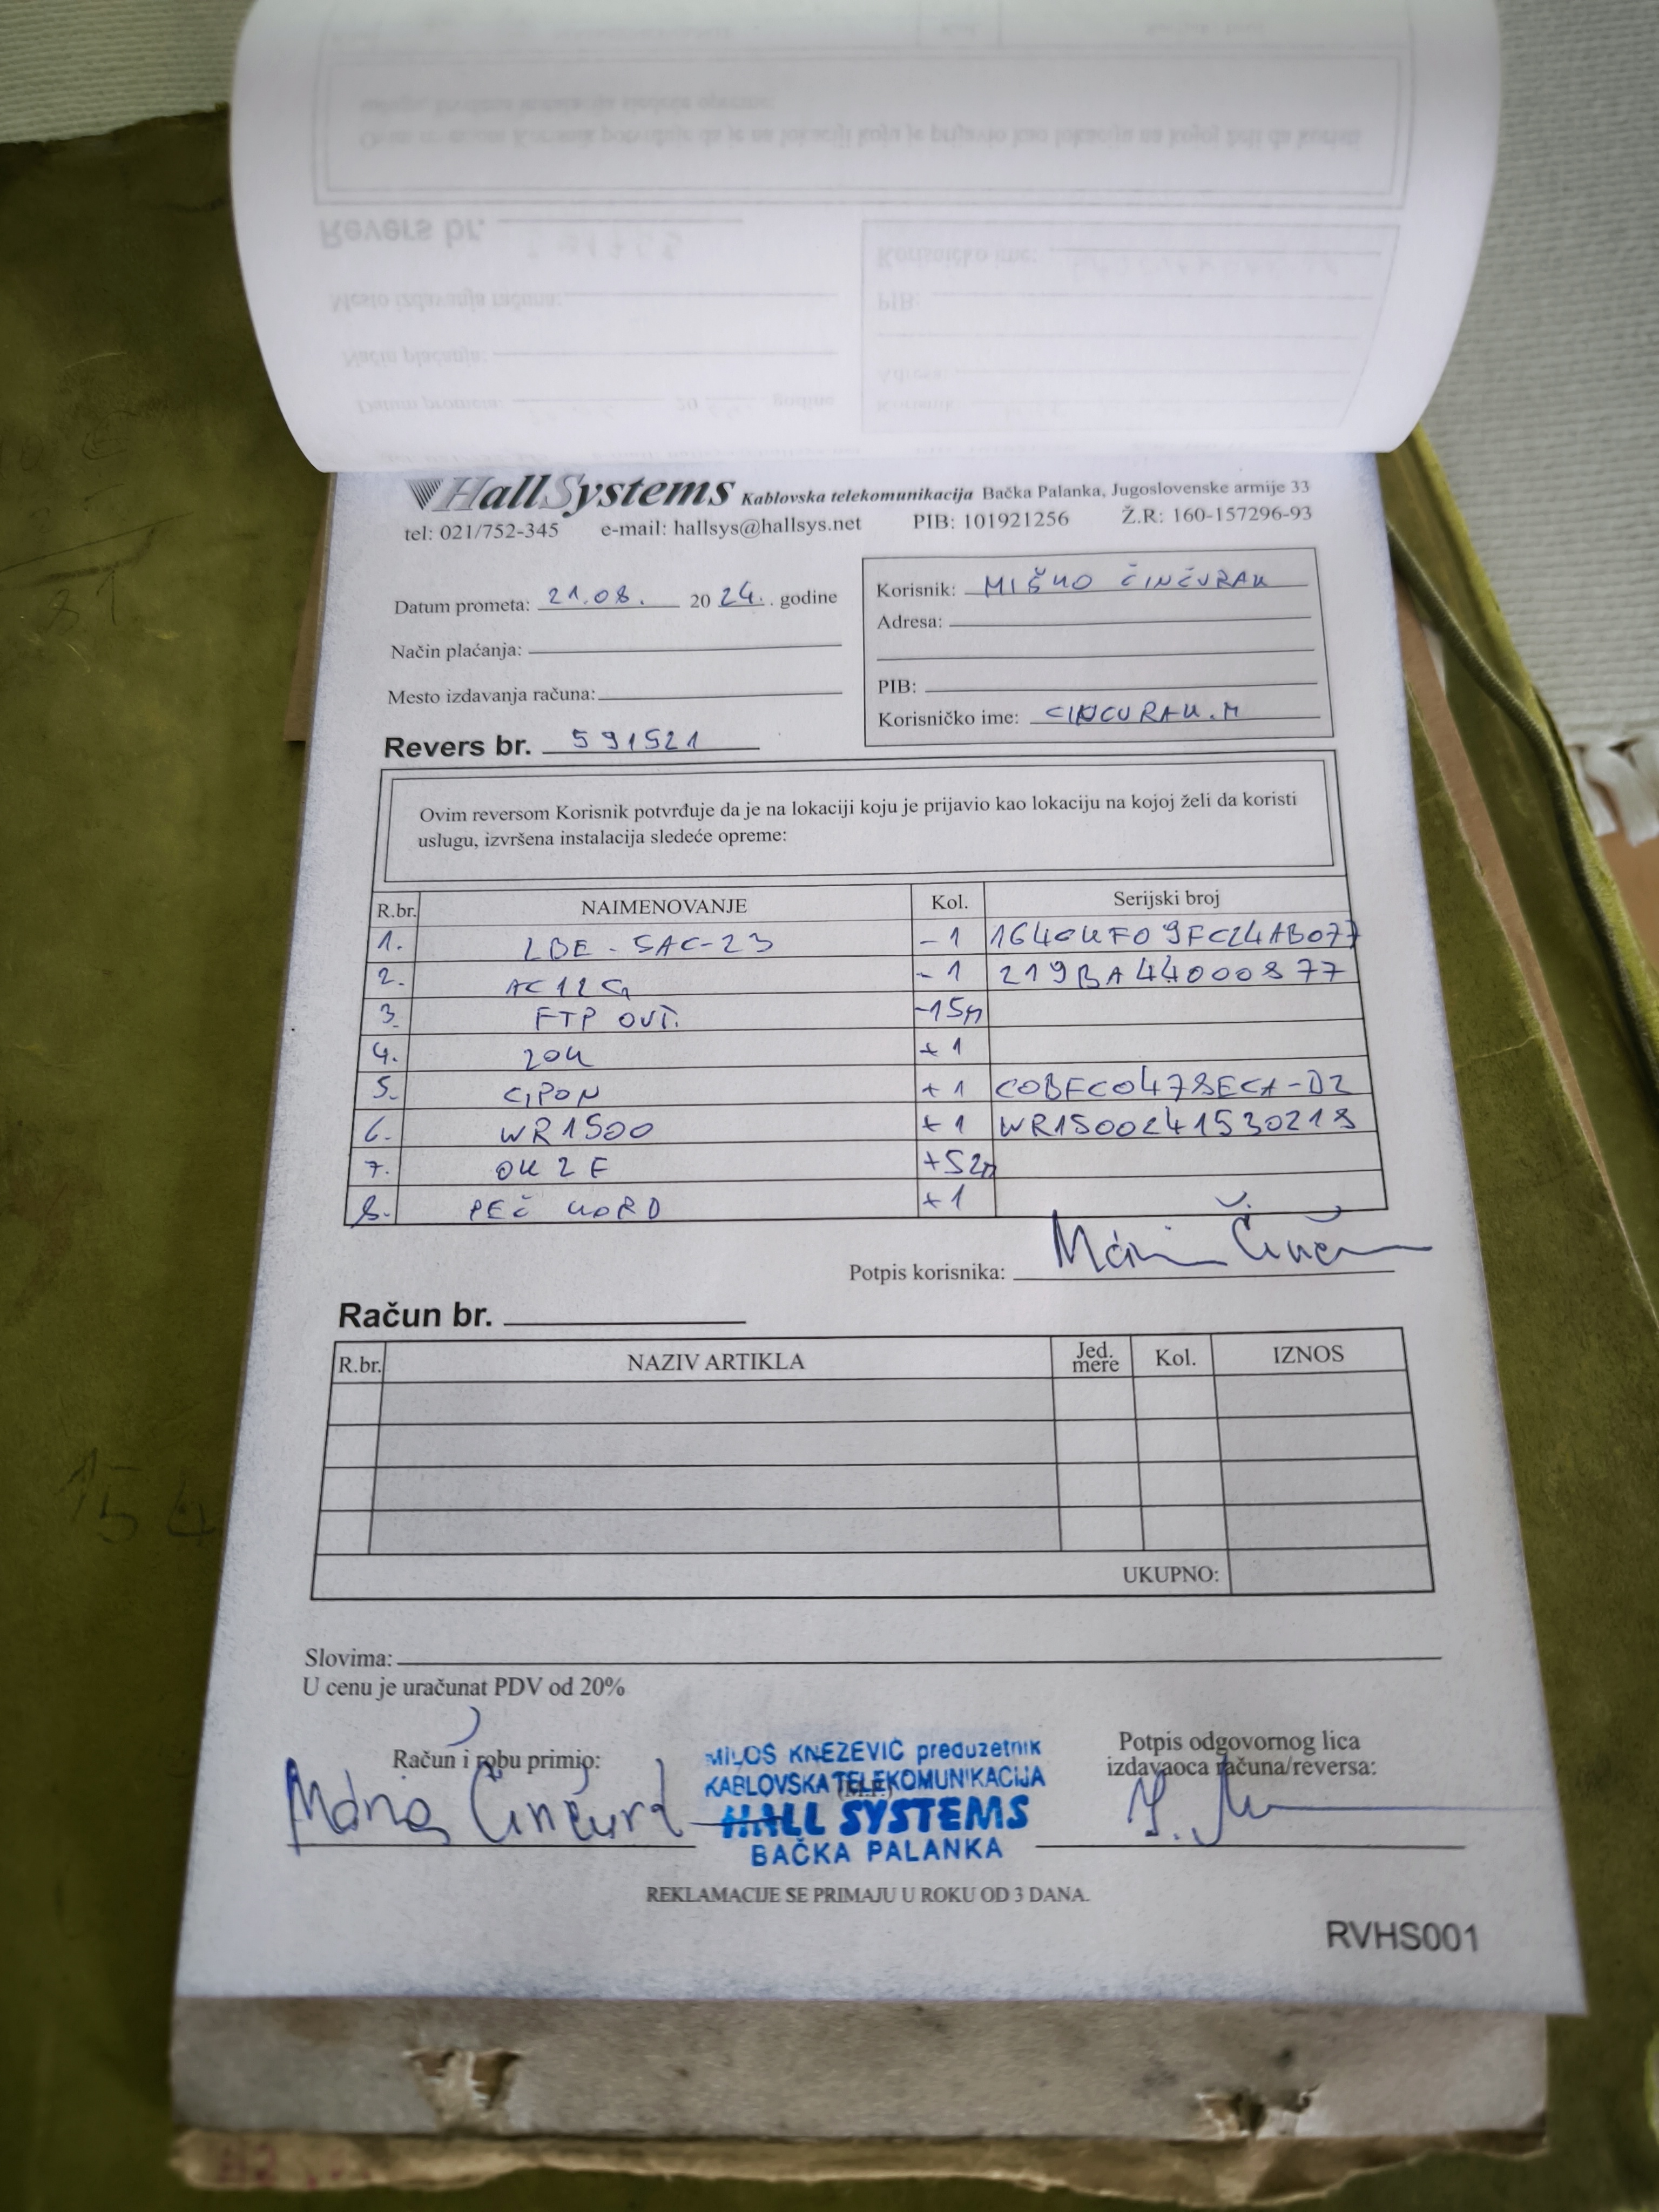 HallSystems Kablovska telekomunikacija Bačka Palanka, Jugoslovenske armije 33
tel: 021/752-345 e-mail: hallsys@hallsys.net PIB: 101921256 Ž.R: 160-157296-93
Datum prometa: 21.08. 2024. godine
Način plaćanja:
Mesto izdavanja računa:
Revers br. 591521
Korisnik: MIŠKO ČINČURAK
Adresa:
PIB:
Korisničko ime: CINCURAK.M
Ovim reversom Korisnik potvrđuje da je na lokaciji koju je prijavio kao lokaciju na kojoj želi da koristi
uslugu, izvršena instalacija sledeće opreme:
R.br. NAIMENOVANJE Kol. Serijski broj
1. LBE-5AC-23 -1
2. AC12G -1 219BA44000877
3. FTP OUT. -15m
4. ZOK +1
5. GPON +1 C0BFC0478ECA-D2
6. WR1500 +1 WR1500241530218
7. OK2F +52m
8. PEČ KORD +1
Potpis korisnika:
Račun br.
R.br. NAZIV ARTIKLA Jed. mere Kol. IZNOS
UKUPNO:
Slovima:
U cenu je uračunat PDV od 20%
Račun i robu primio:
(M.P.)
MILOŠ KNEŽEVIĆ preduzetnik
KABLOVSKA TELEKOMUNIKACIJA
HALL SYSTEMS
BAČKA PALANKA
Potpis odgovornog lica
izdavaoca računa/reversa:
REKLAMACIJE SE PRIMAJU U ROKU OD 3 DANA.
RVHS001